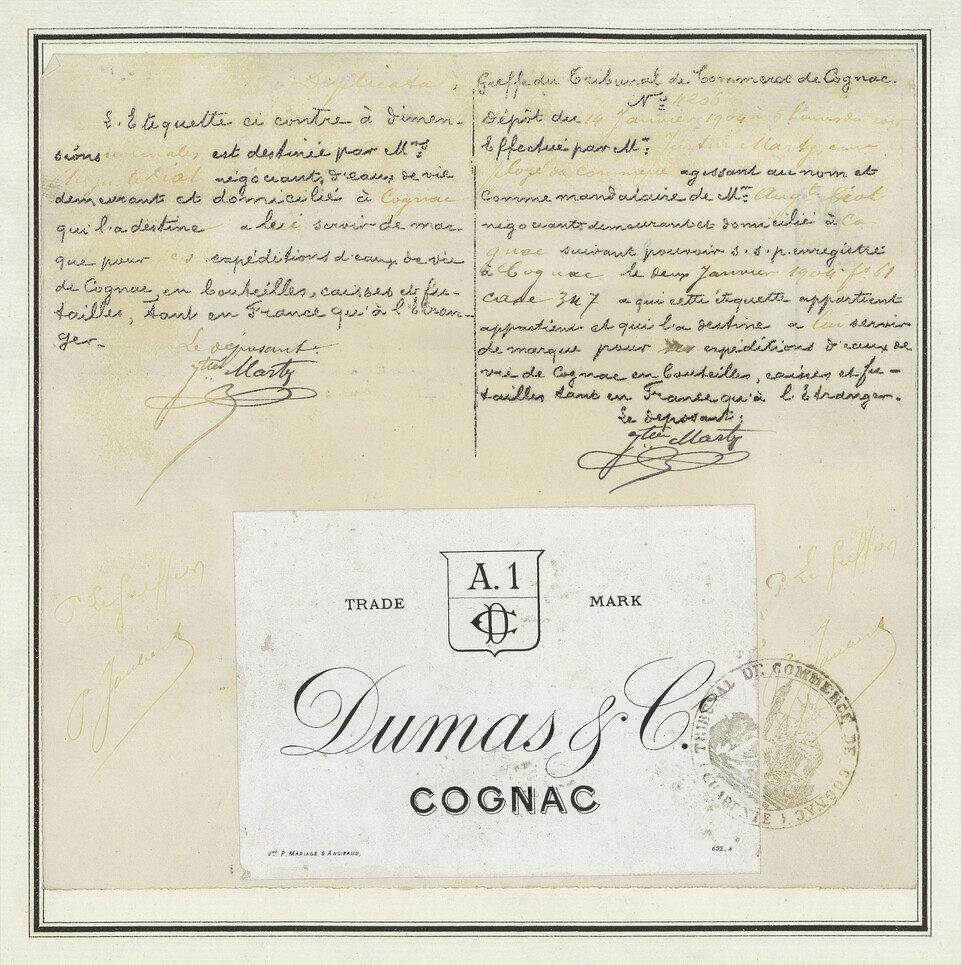 Duplicata
L'Etiquette ci contre à dimen-
sions normales est destinée par Mrs
négociants d'eaux de vie
demeurant et domicilié à Cognac
qui l'a destine a lui servir de mar-
que pour ses expéditions d'eaux de vie
de Cognac, en bouteilles, caisses et fu-
tailles, tant en France qu'à l'Etran-
ger.-
Le déposant.
Marty
Greffe du Tribunal de Commerce de Cognac.
No 4206
Dépôt du 14 Janvier 1904 à 5 heures du soir
Effectué par Mr. Marty, em-
ployé de commerce agissant au nom et
comme mandataire de Mr
négociants demeurant et domicilié à Co-
gnac suivant pouvoir s.s.p. enregistré
à Cognac le deux Janvier 1904 fo 61
case 347 a qui cette étiquette appartient
appartient et qui l'a destine a lui servir
de marque pour ses expéditions d'eaux de
vie de Cognac en bouteilles, caisses et fu-
tailles tant en France qu'à l'Etranger.
Le déposant:
Marty
A.1
TRADE MARK
Dumas & Co.
COGNAC
Vve P. MARIAGE & ANGIBAUD.
632. A
TRIBUNAL DE COMMERCE DE COGNAC
(CHARENTE)
P. Le Greffier
P. Le Greffier